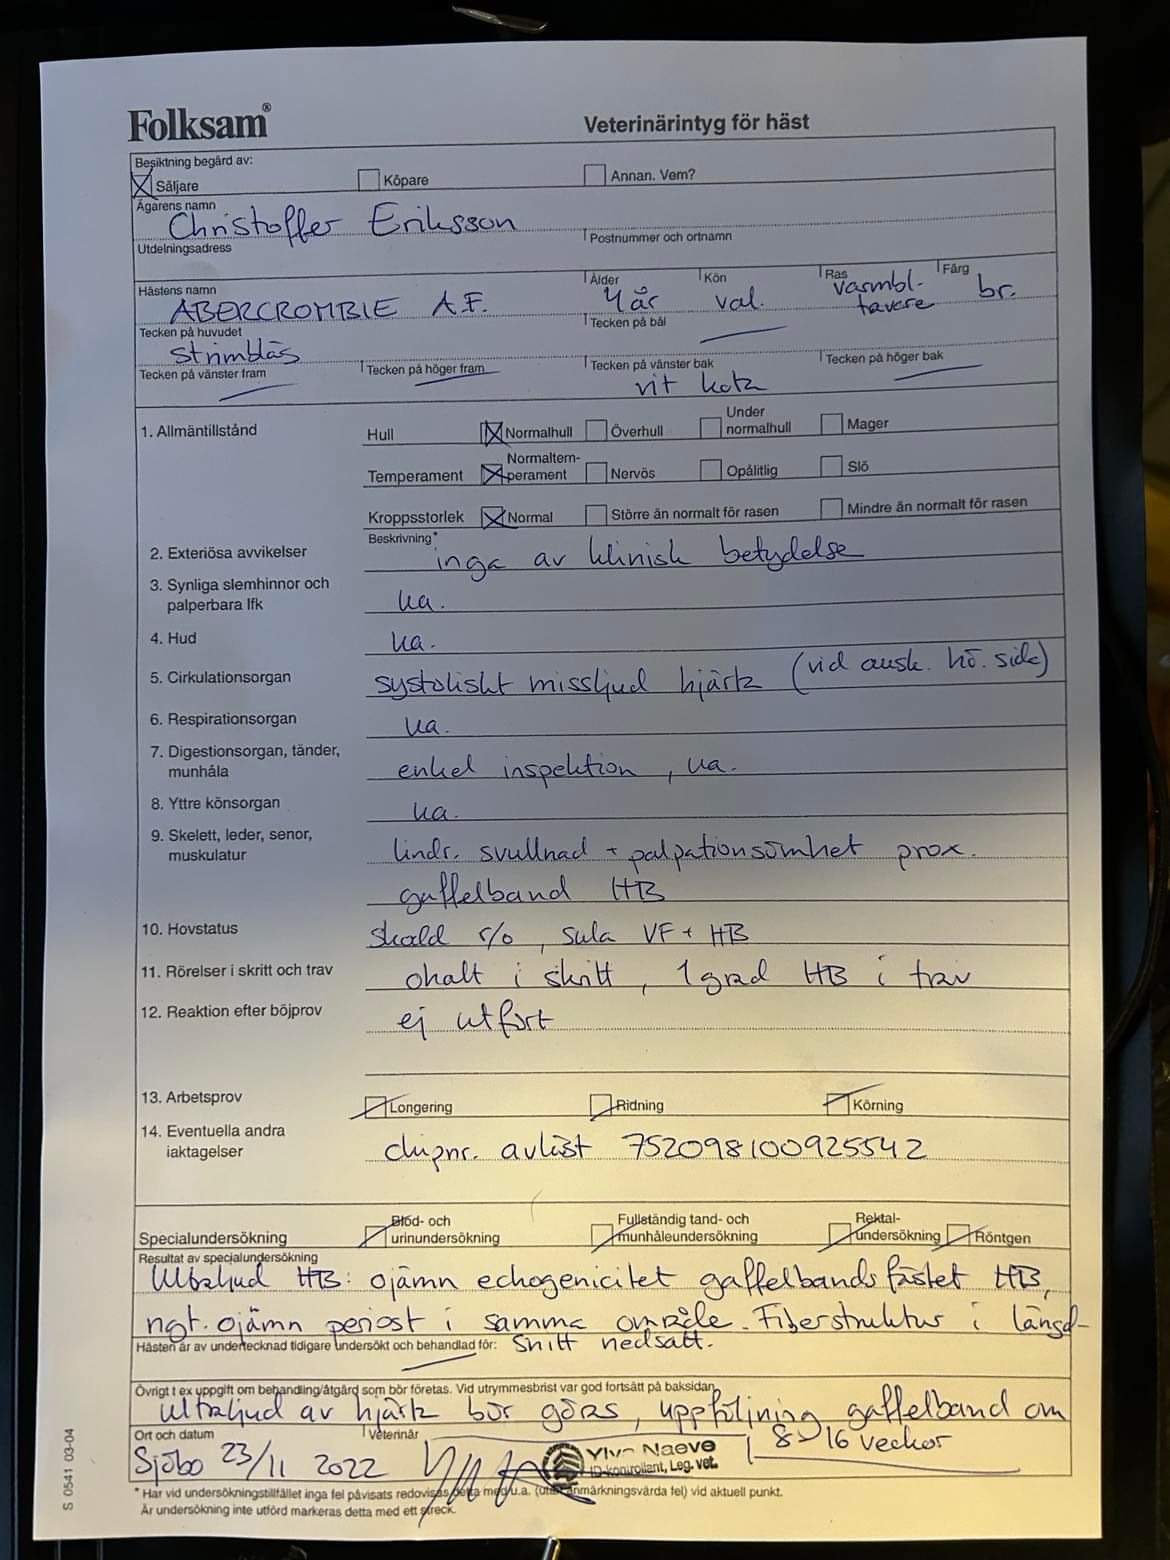 Folksam®
Veterinärintyg för häst
Besiktning begärd av:
Säljare Köpare Annan. Vem?
Ägarens namn
Christoffer Eriksson
Utdelningsadress Postnummer och ortnamn
Hästens namn Ålder Kön Ras Färg
ABERCROMBIE A.F. 4 år val. varmbl. travare br.
Tecken på huvudet Tecken på bål
strimbläs
Tecken på vänster fram Tecken på höger fram Tecken på vänster bak Tecken på höger bak
vit kota
1. Allmäntillstånd Hull Normalhull Överhull Under normalhull Mager
Temperament Normaltemperament Nervös Opålitlig Slö
Kroppsstorlek Normal Större än normalt för rasen Mindre än normalt för rasen
Beskrivning*
2. Exteriösa avvikelser inga av klinisk betydelse
3. Synliga slemhinnor och
palperbara lfk ua.
4. Hud ua.
5. Cirkulationsorgan systoliskt missljud hjärta (vid ausk. hö. sida)
6. Respirationsorgan ua.
7. Digestionsorgan, tänder,
munhåla enkel inspektion, ua.
8. Yttre könsorgan ua.
9. Skelett, leder, senor,
muskulatur lindr. svullnad + palpationsömhet prox.
gaffelband HB
10. Hovstatus skodd r/o, sula VF + HB
11. Rörelser i skritt och trav ohalt i skritt, 1 grad HB i trav
12. Reaktion efter böjprov ej utfört
13. Arbetsprov Longering Ridning Körning
14. Eventuella andra
iaktagelser chipnr. avläst 752098100925542
Specialundersökning Blod- och urinundersökning Fullständig tand- och munhåleundersökning Rektal-undersökning Röntgen
Resultat av specialundersökning
Ultraljud HB: ojämn echogenicitet gaffelbandsfästet HB,
ngt. ojämn periost i samma område. Fiberstruktur i längd-
Hästen är av undertecknad tidigare undersökt och behandlad för: snitt nedsatt.
Övrigt t ex uppgift om behandling/åtgärd som bör företas. Vid utrymmesbrist var god fortsätt på baksidan
Ultraljud av hjärta bör göras, uppföljning gaffelband om
8-16 veckor
Ort och datum Veterinär
Sjöbo 23/11 2022
Ylva Naeve
ID-kontrollant, Leg. vet.
* Har vid undersökningstillfället inga fel påvisats redovisas detta med u.a. (utan anmärkningsvärda fel) vid aktuell punkt.
Är undersökning inte utförd markeras detta med ett streck.
S 0541 03-04